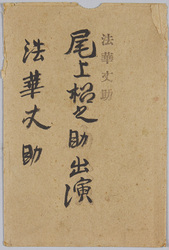 法華丈助
尾上松之助出演
法華丈助